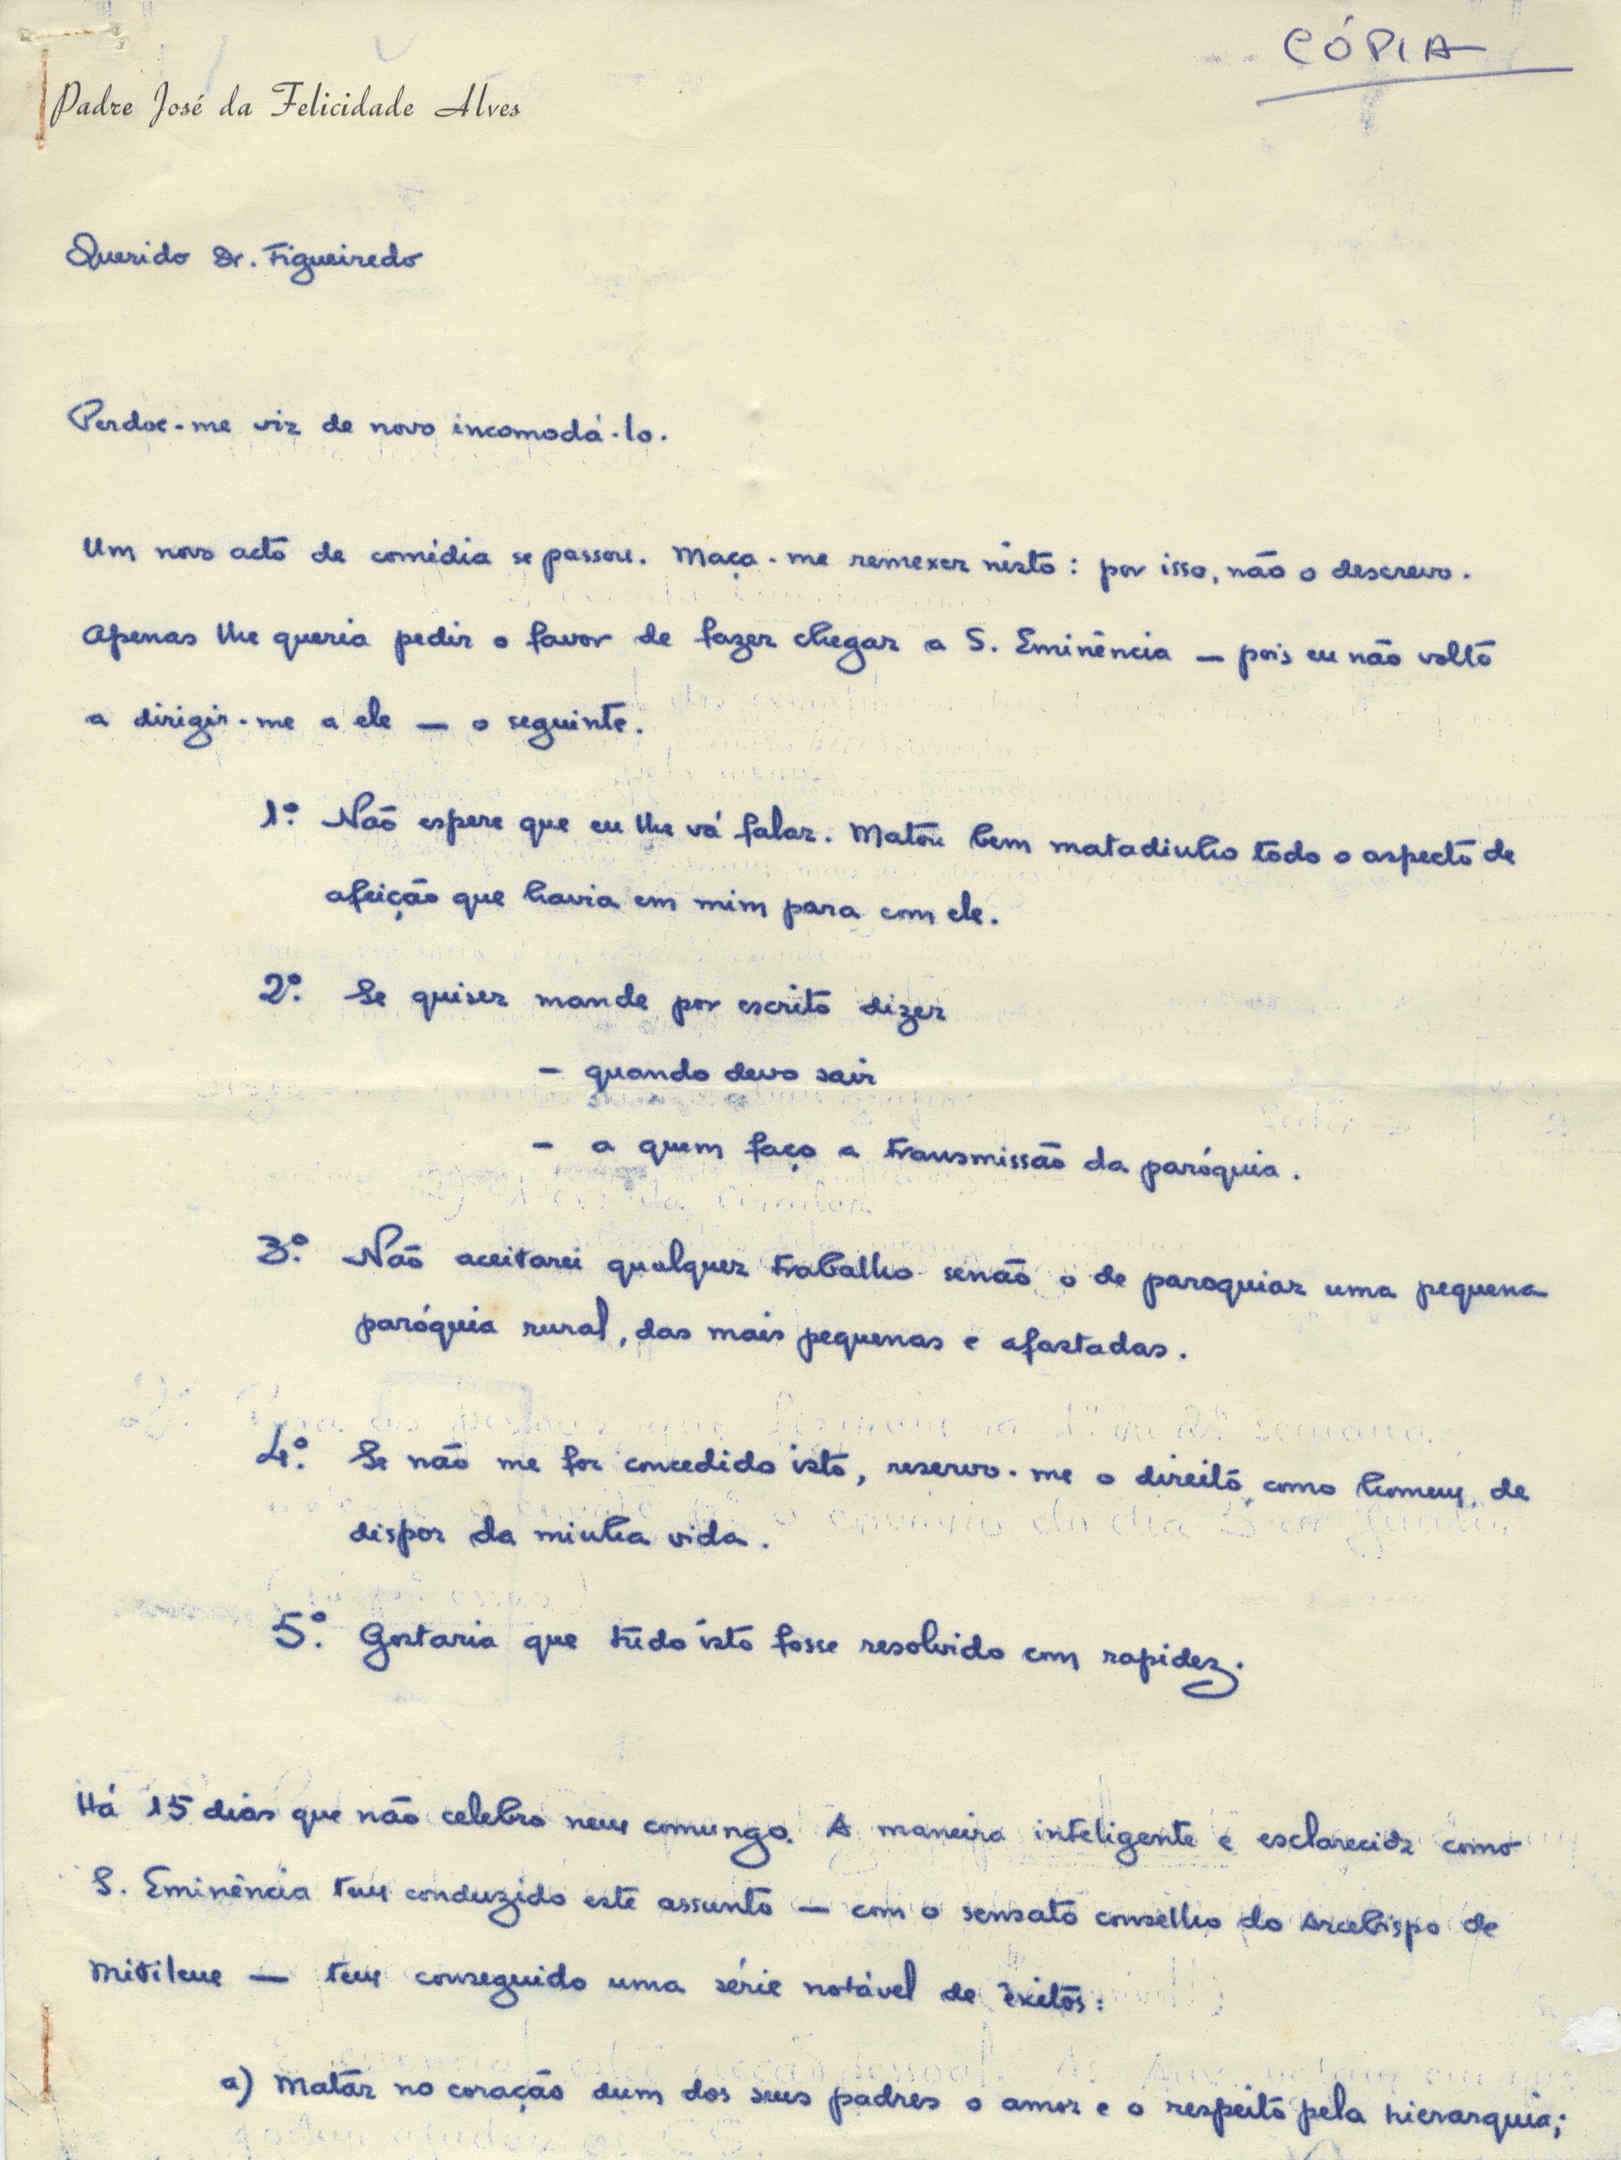 CÓPIA
Padre José da Felicidade Alves
Querido Dr. Figueiredo
Perdoe-me vir de novo incomodá-lo.
Um novo acto de comédia se passou. Maça-me remexer nisto: por isso, não o descrevo.
Apenas lhe queria pedir o favor de fazer chegar a S. Eminência — pois eu não volto
a dirigir-me a ele — o seguinte.
1º. Não espere que eu lhe vá falar. Matou bem matadinho todo o aspecto de
afeição que havia em mim para com ele.
2º. Se quiser mande por escrito dizer
- quando devo sair
- a quem faço a transmissão da paróquia.
3º. Não aceitarei qualquer trabalho senão o de paroquiar uma pequena
paróquia rural, das mais pequenas e afastadas.
4º. Se não me for concedido isto, reservo-me o direito, como homem, de
dispor da minha vida.
5º. Gostaria que tudo isto fosse resolvido com rapidez.
Há 15 dias que não celebro nem comungo. A maneira inteligente e esclarecida como
S. Eminência tem conduzido este assunto — com o sensato conselho do Arcebispo de
Mitilene — tem conseguido uma série notável de êxitos:
a) Matar no coração dum dos seus padres o amor e o respeito pela hierarquia;